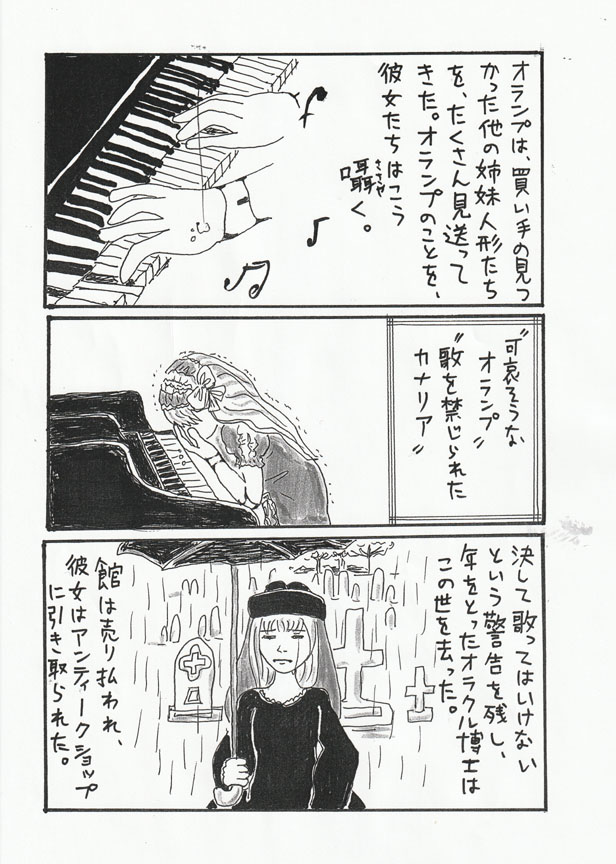 オランプは、買い手の見つ
かった他の姉妹人形たち
を、たくさん見送って
きた。オランプのことを、
彼女たちはこう
囁く。
ささや
〝可哀そうな
オランプ〟
〝歌を禁じられた
カナリア〟
決して歌ってはいけない
という警告を残し、
年をとったオラクル博士は
この世を去った。
館は売り払われ、
彼女はアンティークショップ
に引き取られた。